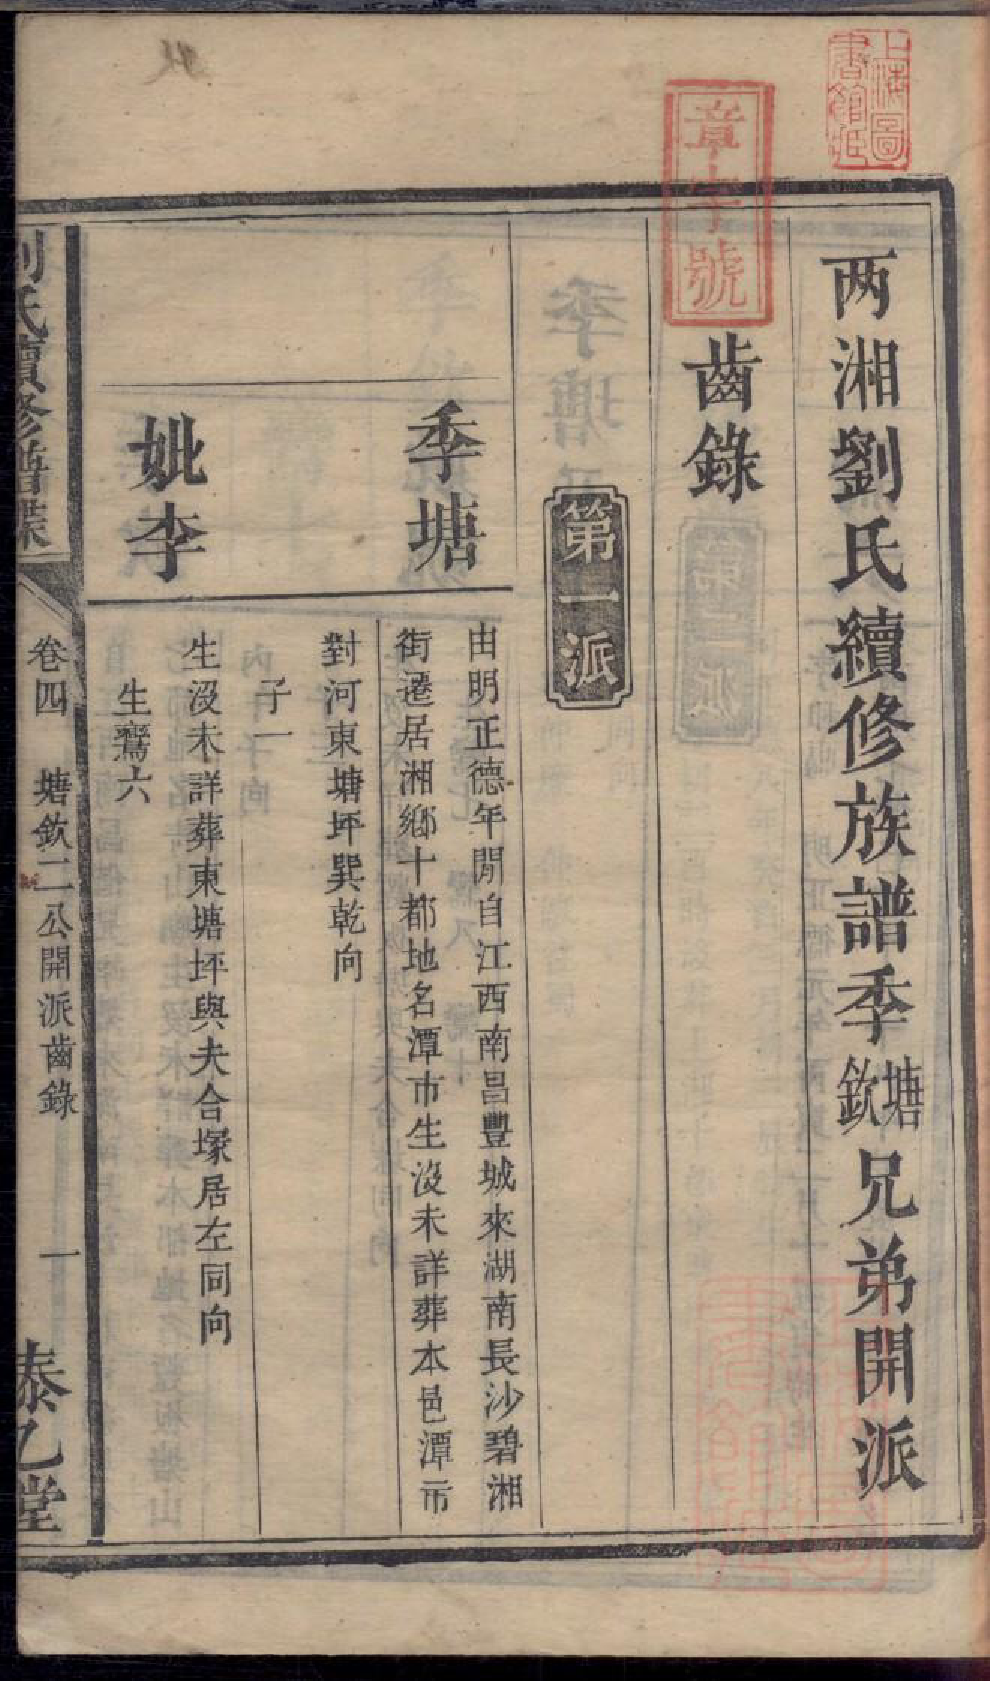 上海圖書館藏
章字號
两湘劉氏續修族譜季塘欽兄弟開派
齒錄
第一派
季塘
由明正德年間自江西南昌豐城來湖南長沙碧湘
街遷居湘鄉十都地名潭市生沒未詳葬本邑潭市
對河東塘坪巽乾向
子一
妣李
生沒未詳葬東塘坪與夫合塚居左同向
生鸞六
劉氏續修譜牒
卷四 塘欽二公開派齒錄
一
泰乙堂